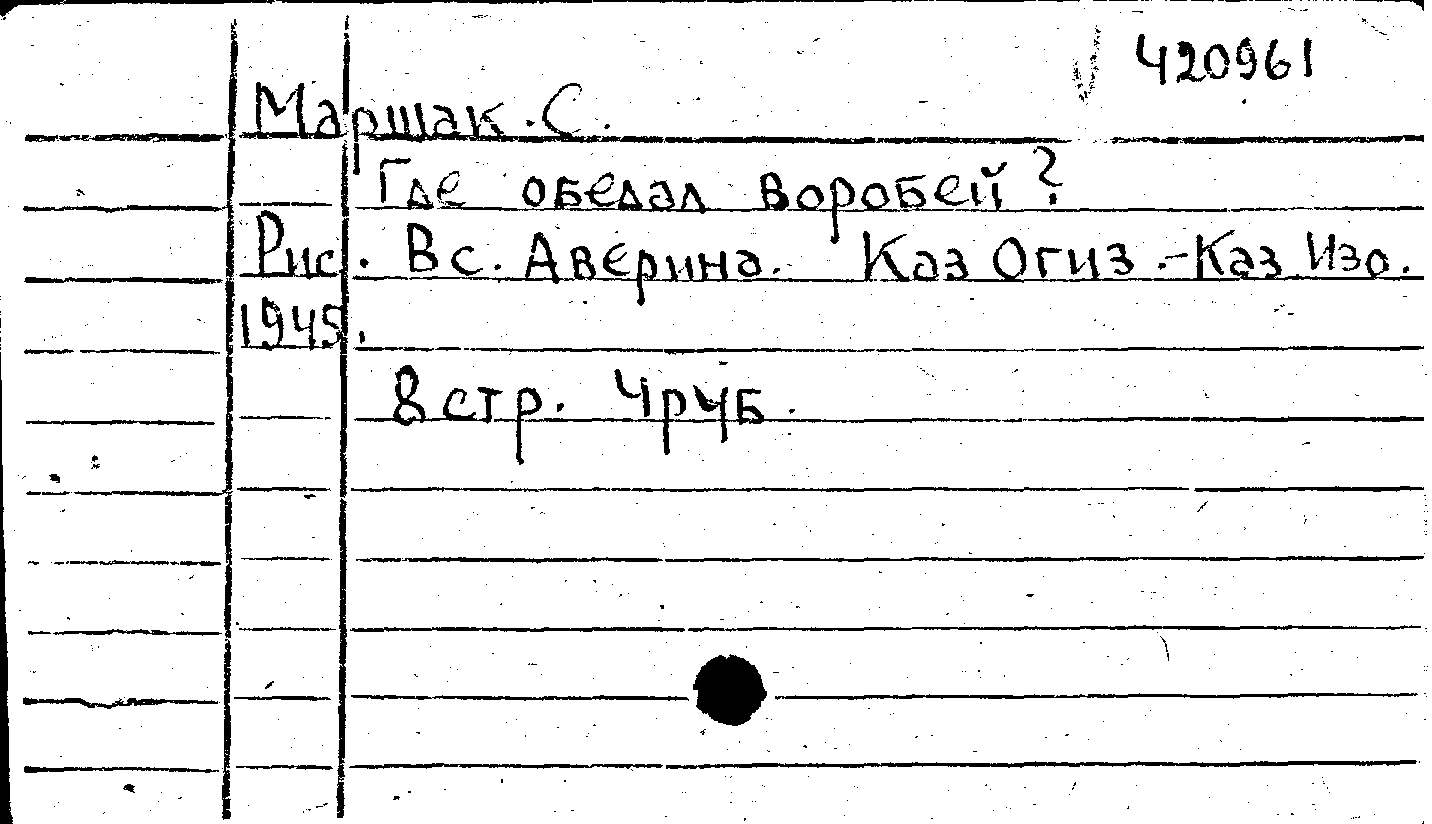 420961
Маршак. С.
Где обедал воробей?
Рис. Вс. Аверина. Каз Огиз.-Каз Изо.
1945.
8 стр. 4 руб.